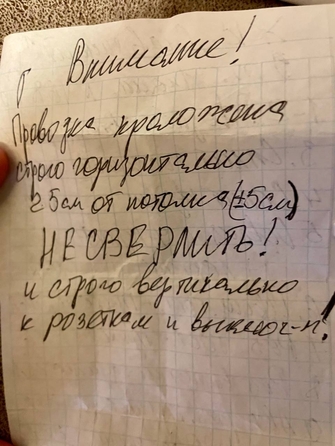 Внимание!
Проводка проложена
строго горизонтально
25см от потолка (±5см)
НЕ СВЕРЛИТЬ!
и строго вертикально
к розеткам и выключ-м!